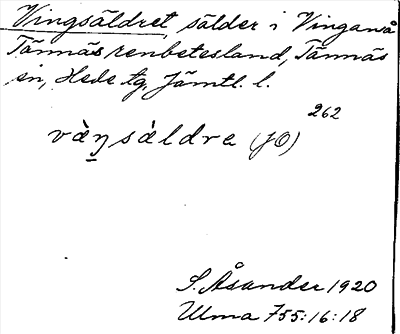 Vingsäldret, sälder i Vinganså
Tännäs renbetesland, Tännäs
sn, Hede tg, Jämtl. l.
262
vàŋsàldra (JO)
S. Åsander 1920
Ulma 755:16:18